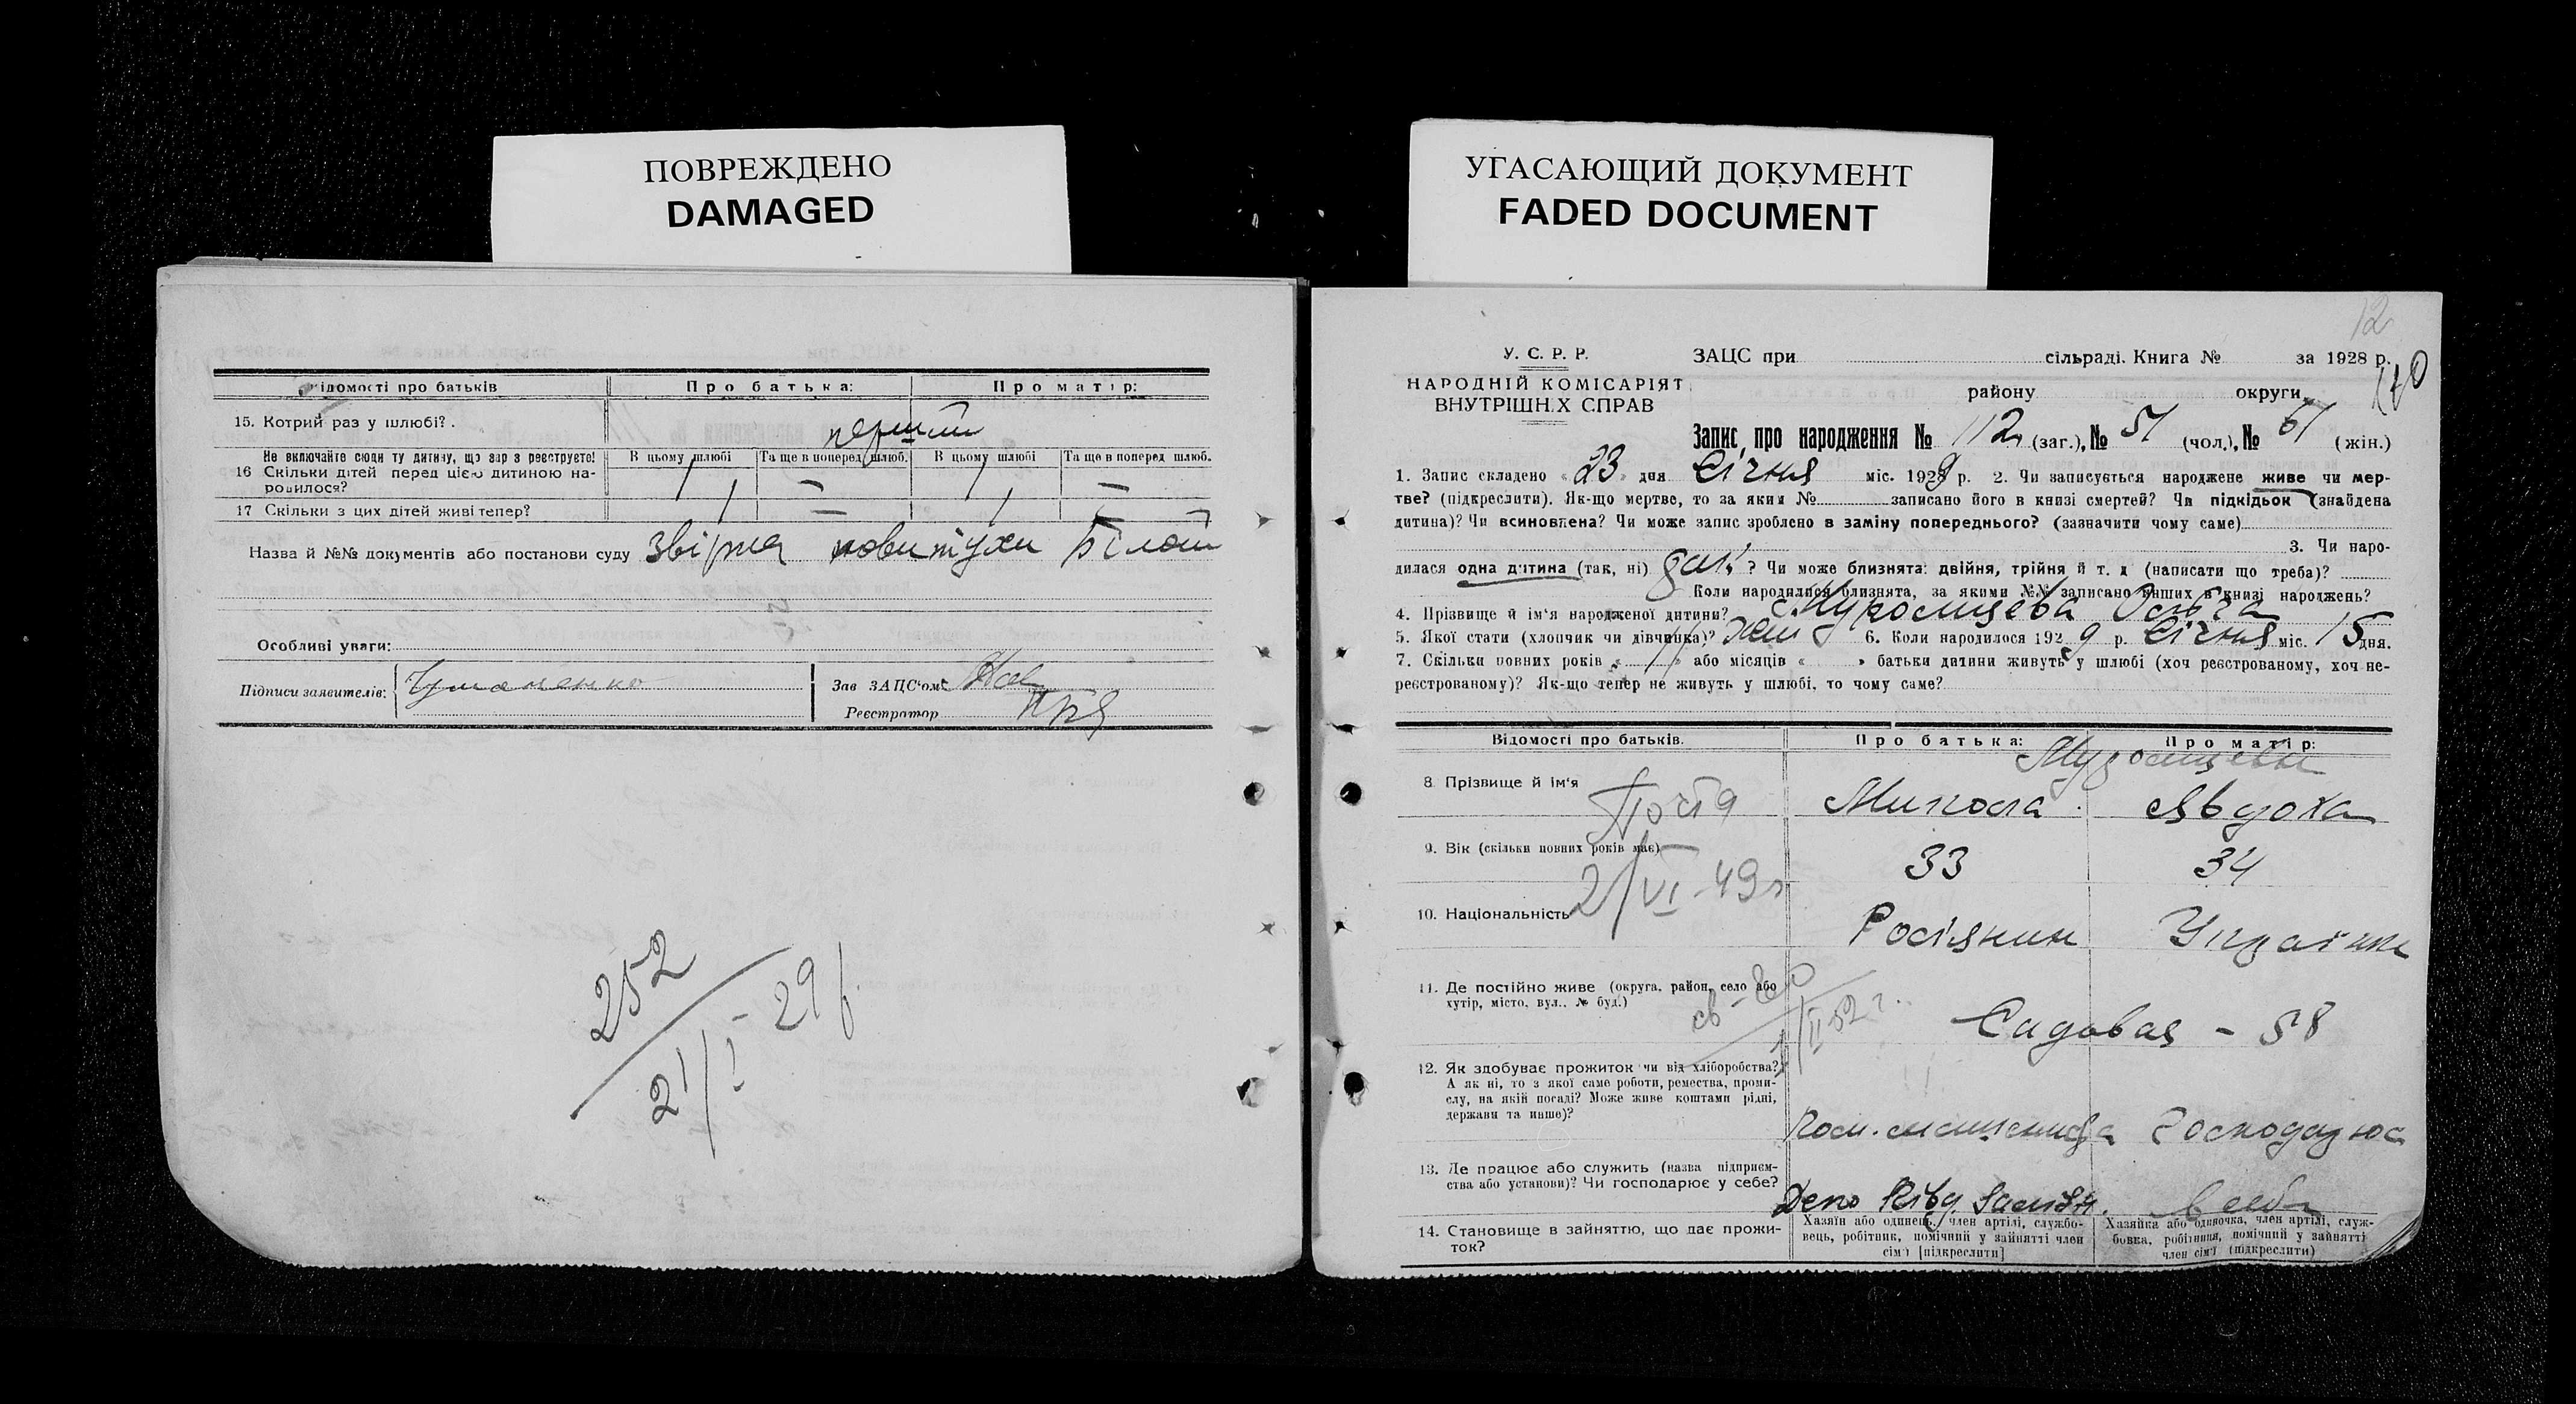 ПОВРЕЖДЕНО
DAMAGED
УГАСАЮЩИЙ ДОКУМЕНТ
FADED DOCUMENT
ідомості про батьків
Про батька:
Про матір:
15. Котрий раз у шлюбі?.
перший
Не включайте сюди ту дитину, що зар з реєструєте!
В цьому шлюбі
Та ще в поперед. шлюб.
В цьому шлюбі
Та ще в поперед шлюб.
16 Скільки дітей перед цією дитиною на-
родилося?
1 — 1 —
17 Скільки з цих дітей живі тепер?
1 — 1 —
Назва й №№ документів або постанови суду
повитухи
Особливі уваги:
Підписи заявителів:
Зав ЗАЦС'ом:
Реєстратор
252
21/I-29 р.
12
У. С. Р. Р.
ЗАЦС при сільраді. Книга № за 1928 р.
НАРОДНІЙ КОМІСАРІЯТ
ВНУТРІШН.Х СПРАВ
району округи
Запис про народження № 112 (заг.), № 51 (чол.), № 61 (жін.)
1. Запис складено « 23 » дня Січня міс. 1929 р. 2. Чи записується народжене живе чи мер-
тве? (підкреслити). Як-що мертве, то за яким № записано його в книзі смертей? Чи підкідьок (знайдена
дитина)? Чи всиновлена? Чи може запис зроблено в заміну попереднього? (зазначити чому саме)
3. Чи наро-
дилася одна дитина (так, ні) ? Чи може близнята: двійня, трійня й т. д (написати що треба)?
Коли народилися близнята, за якими №№ записано инших в книзі народжень?
4. Прізвище й ім'я народженої дитини?
5. Якої стати (хлопчик чи дівчинка)? жін 6. Коли народилося 1929 р. Січня міс. 15 дня.
7. Скільки повних років « 11 » або місяців « » батьки дитини живуть у шлюбі (хоч реєстрованому, хоч не-
реєстрованому)? Як-що тепер не живуть у шлюбі, то чому саме?
Відомості про батьків.
Про батька:
Про матір:
8. Прізвище й ім'я
Микола
Явдоха
9. Вік (скільки повних років має)
33
34
2/VI-49 г
10. Національність
Росіянин
11. Де постійно живе (округа, район, село або
хутір, місто, вул., № буд.)
Садовая - 58
12. Як здобуває прожиток чи від хліборобства?
А як ні, то з якої саме роботи, ремества, проми-
слу, на якій посаді? Може живе коштами рідні,
держави та инше)?
13. Де працює або служить (назва підприєм-
ства або установи)? Чи господарює у себе?
Депо
14. Становище в зайняттю, що дає прожи-
ток?
Хазяїн або одинець, член артілі, службо-
вець, робітник, помічний у зайнятті член
сім'ї [підкреслити]
Хазяйка або одиночка, член артілі, служ-
бовка, робітниця, помічний у зайнятті
член сім'ї (підкреслити)